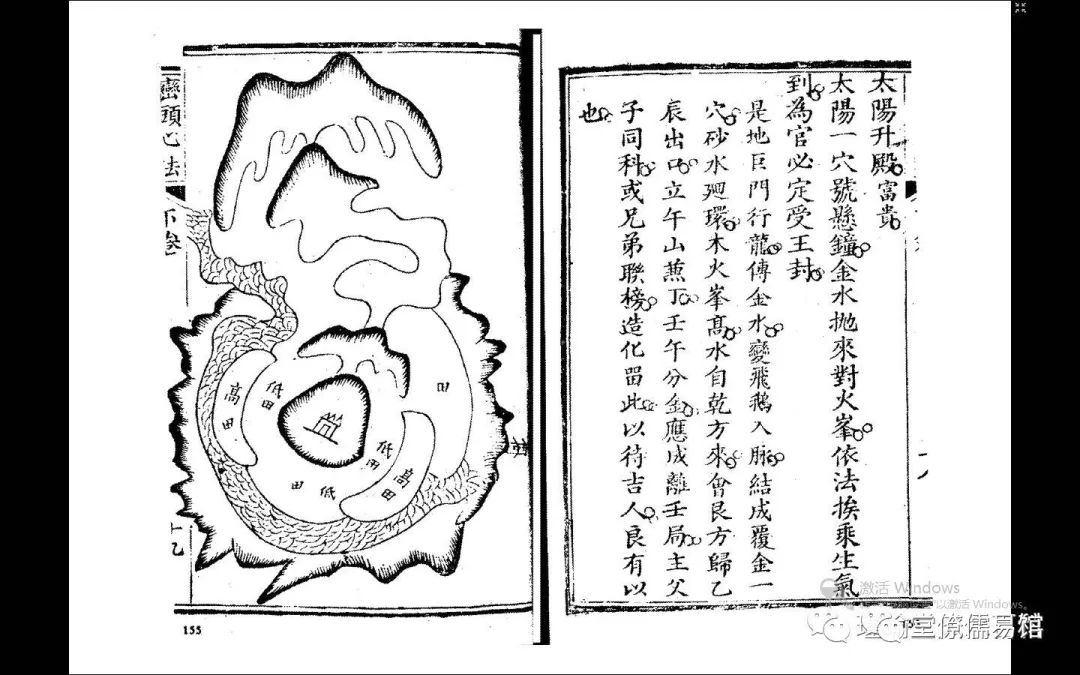 太陽升殿富貴
太陽一穴號懸鐘金水拋來對火峯依法挨乘生氣
到為官必定受王封
是地巨門行龍傳金水變飛鵝入脉結成覆金一
穴砂水廻環木火峯髙水自乾方來會艮方歸乙
辰出口立午山兼丁壬午分金應成離壬局主父
子同科或兄弟聯榜造化留此以待吉人良有以
也
巒頭心法
下卷
十九
高田
低田
田
低田
高田
低田
155
激活 Windows
以激活 Windows。
堂僚儒易馆